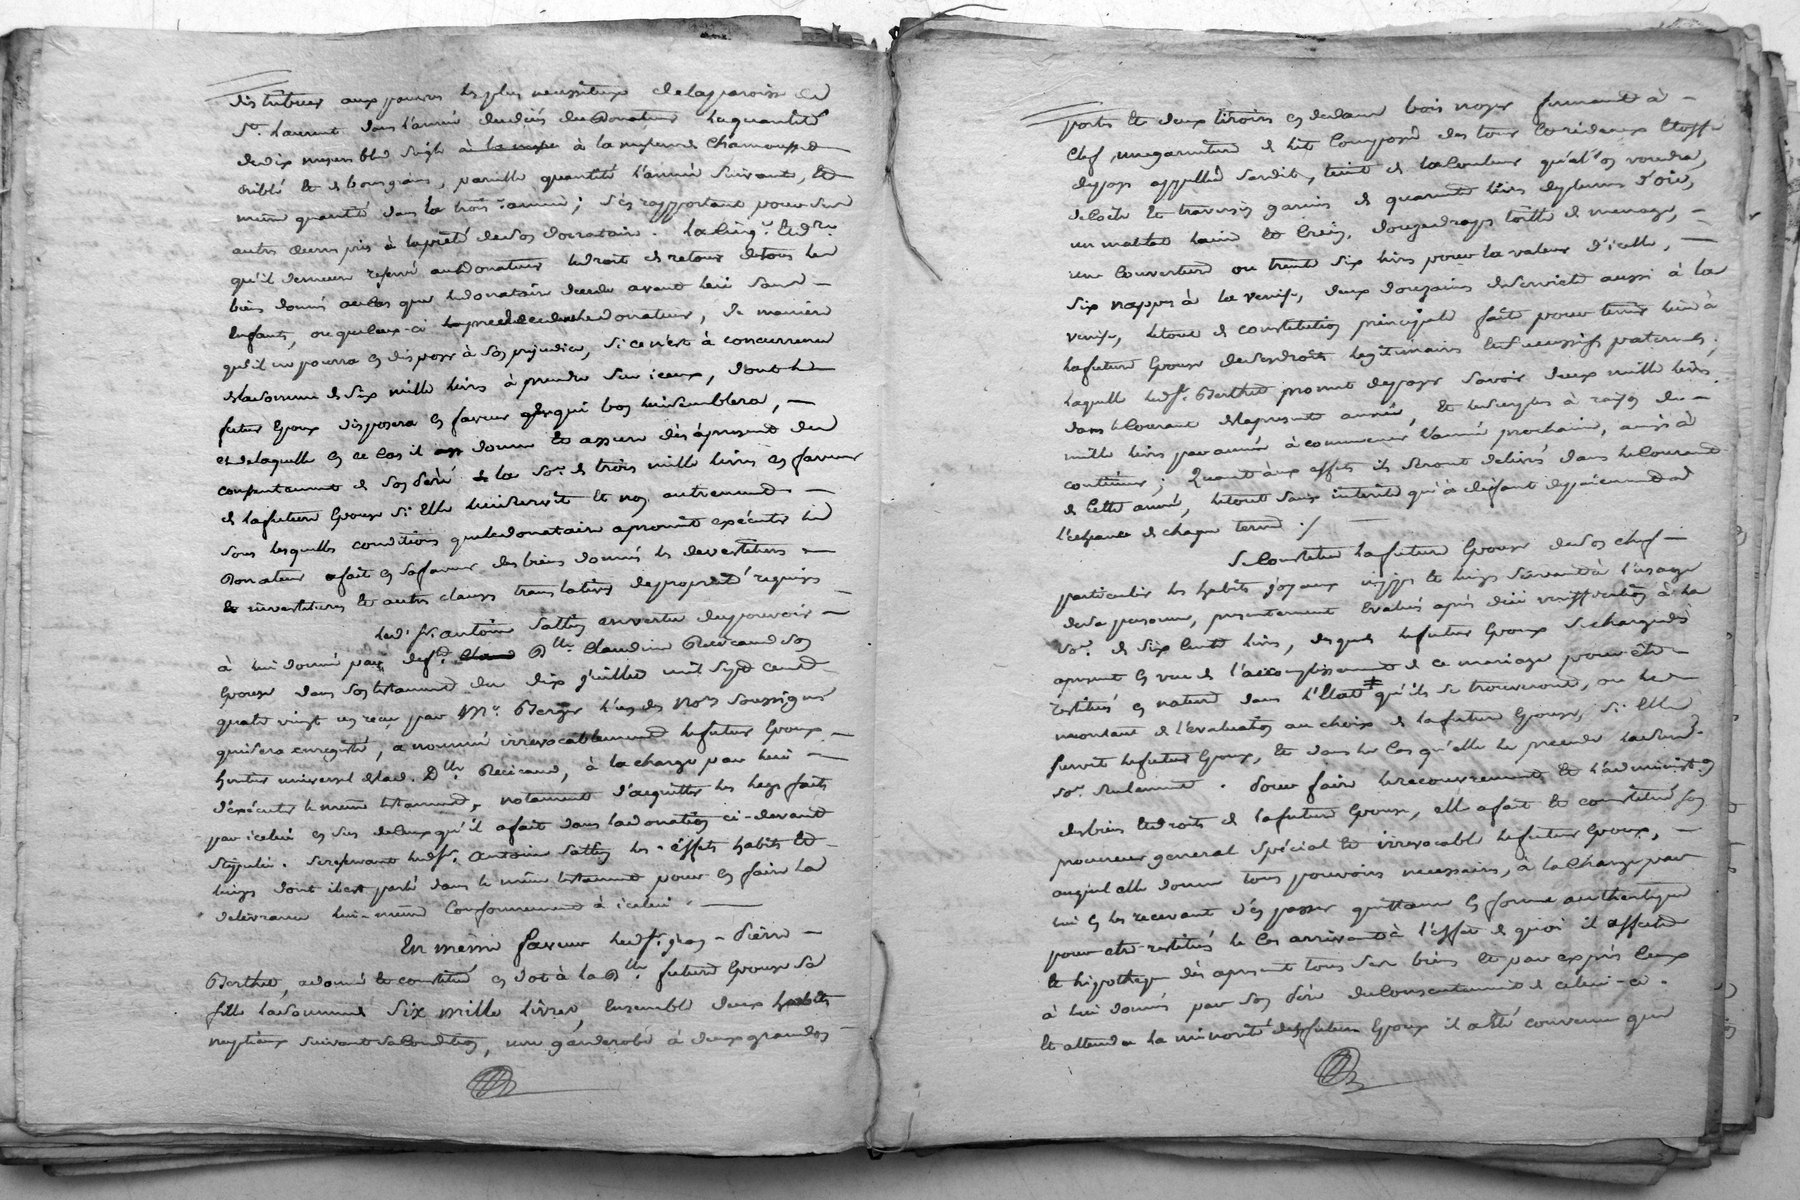 distribuer aux pauvres les plus necessiteux de la paroisse de
St. Laurent dans l'année du décés du Donateur la quantité
de dix mesures bled seigle à la mesure de Chamousset
criblé et de bon grain, pareille quantité l'année suivante, et
même quantité dans la trois.e année; s'en rapportant pour ses
autres œuvres pies à la piété de son donataire. La cinq.e et dre
qu'il demeure reservé au Donateur le droit de retour de tous les
biens donnés au cas que le donataire decede avant lui sans
Enfants, ou que ceux-ci le donateur, de maniere
qu'il ne pourra en disposer à son prejudice, si ce n'est à concurrence
de la somme de six mille livres à prendre sur iceux, dont le
futur Epoux disposera en faveur de qui bon lui semblera,
et de laquelle en ce cas il donne et assure dès à present du
consentement de son Père la so.e de trois mille livres en faveur
de la future Epouse si elle lui survit et non autrement
Sous lesquelles conditions que le donataire a promit exécuter led
Donateur a fait en sa faveur des biens donnés les devestitures
et investitures et autres clauses translatives de propriété requises
Led. Sr. antoine en vertu du pouvoir
à lui donné par def.te Dlle Claudine son
Epouse dans son testament du dix juillet mil sept cent
quatre vingt un reçu par Mr. Berger l'un des No.res soussignés
qui sera enregistré, a nommé irrevocablement le futur Epoux
heritier universel de lad. Dlle, à la charge par lui
d'exécuter le même testament, notament d'acquitter les legs faits
par icelui en sus de ceux qu'il a fait dans la donation ci-devant
Stypulée. Se reservant led Sr. Antoine les effets habits et
linges dont il est parlé dans le même testament pour en faire la
delivrance lui-même conformement à icelui.
En même faveur led Sr. jean-Pierre
Berthet, a donné et constitué en dot à la Dlle future Epouse sa
fille la somme de Six mille livres, Ensemble deux habits
nuptiaux suivant sa condition, une garderobe à deux grandes
portes et deux tiroirs en dedans bois noyer fermant à
Clef, une garniture de lit composée des tour et rideaux Etoffe
du pays appellée, teint de la couleur qu'elle voudra,
de coete et traversin garnis de quarante livres de plumes d'oie,
un mattelat laine et crein, douze draps toille de menage,
une couverture ou trente six livres pour la valeur d'icelle,
Six nappes à la venise, deux douzaines de serviette aussi à la
venise, le tout de constitution principale fait pour tenir lieu à
la future Epouse de ses droits legitimaires et successifs paternels;
laquelle led Sr. Berthet promet de payer savoir deux mille livres
dans le courant de la presente année, et le surplus à raison de
mille livres par année à commencer l'année prochaine, ainsi à
continuer; Quant aux effets ils seront delivrés dans le courant
de cette année, le tout sans interets qu'à deffaut de paiement à
l'echeance de chaque terme ./.
Se Constitue la future Epouse de son chef
particulier les habits joyaux nippes et linges servant à l'usage
de sa personne, presentement évalués après due veriffication à la
so.e de six cents livres, desquels le futur Epoux se charge dès
apresent en vue de l'accomplissement de ce mariage pour être
restitués en nature dans l'Etat qu'ils se trouveront, ou le
montant de l'evaluation au choix de la future Epouse, si Elle
survit le futur Epoux, et dans le cas qu'elle le precede lad
so.e seulement. Pour faire le recouvrement et l'administ.on
des biens et droits de la future Epouse, elle a fait et constitué son
procureur general spécial et irrevocable le futur Epoux,
auquel elle donne tous pouvoirs necessaires, à la charge par
lui en les recevant d'en passer quittance en forme authentique
pour etre restitués le cas arrivant à l'effet de quoi il affecte
et hipotheque dès apresent tous ses biens et par exprès ceux
à lui donnés par son Père du consentement de celui-ci.
Et attendu la minorité du futur Epoux il a été convenu que